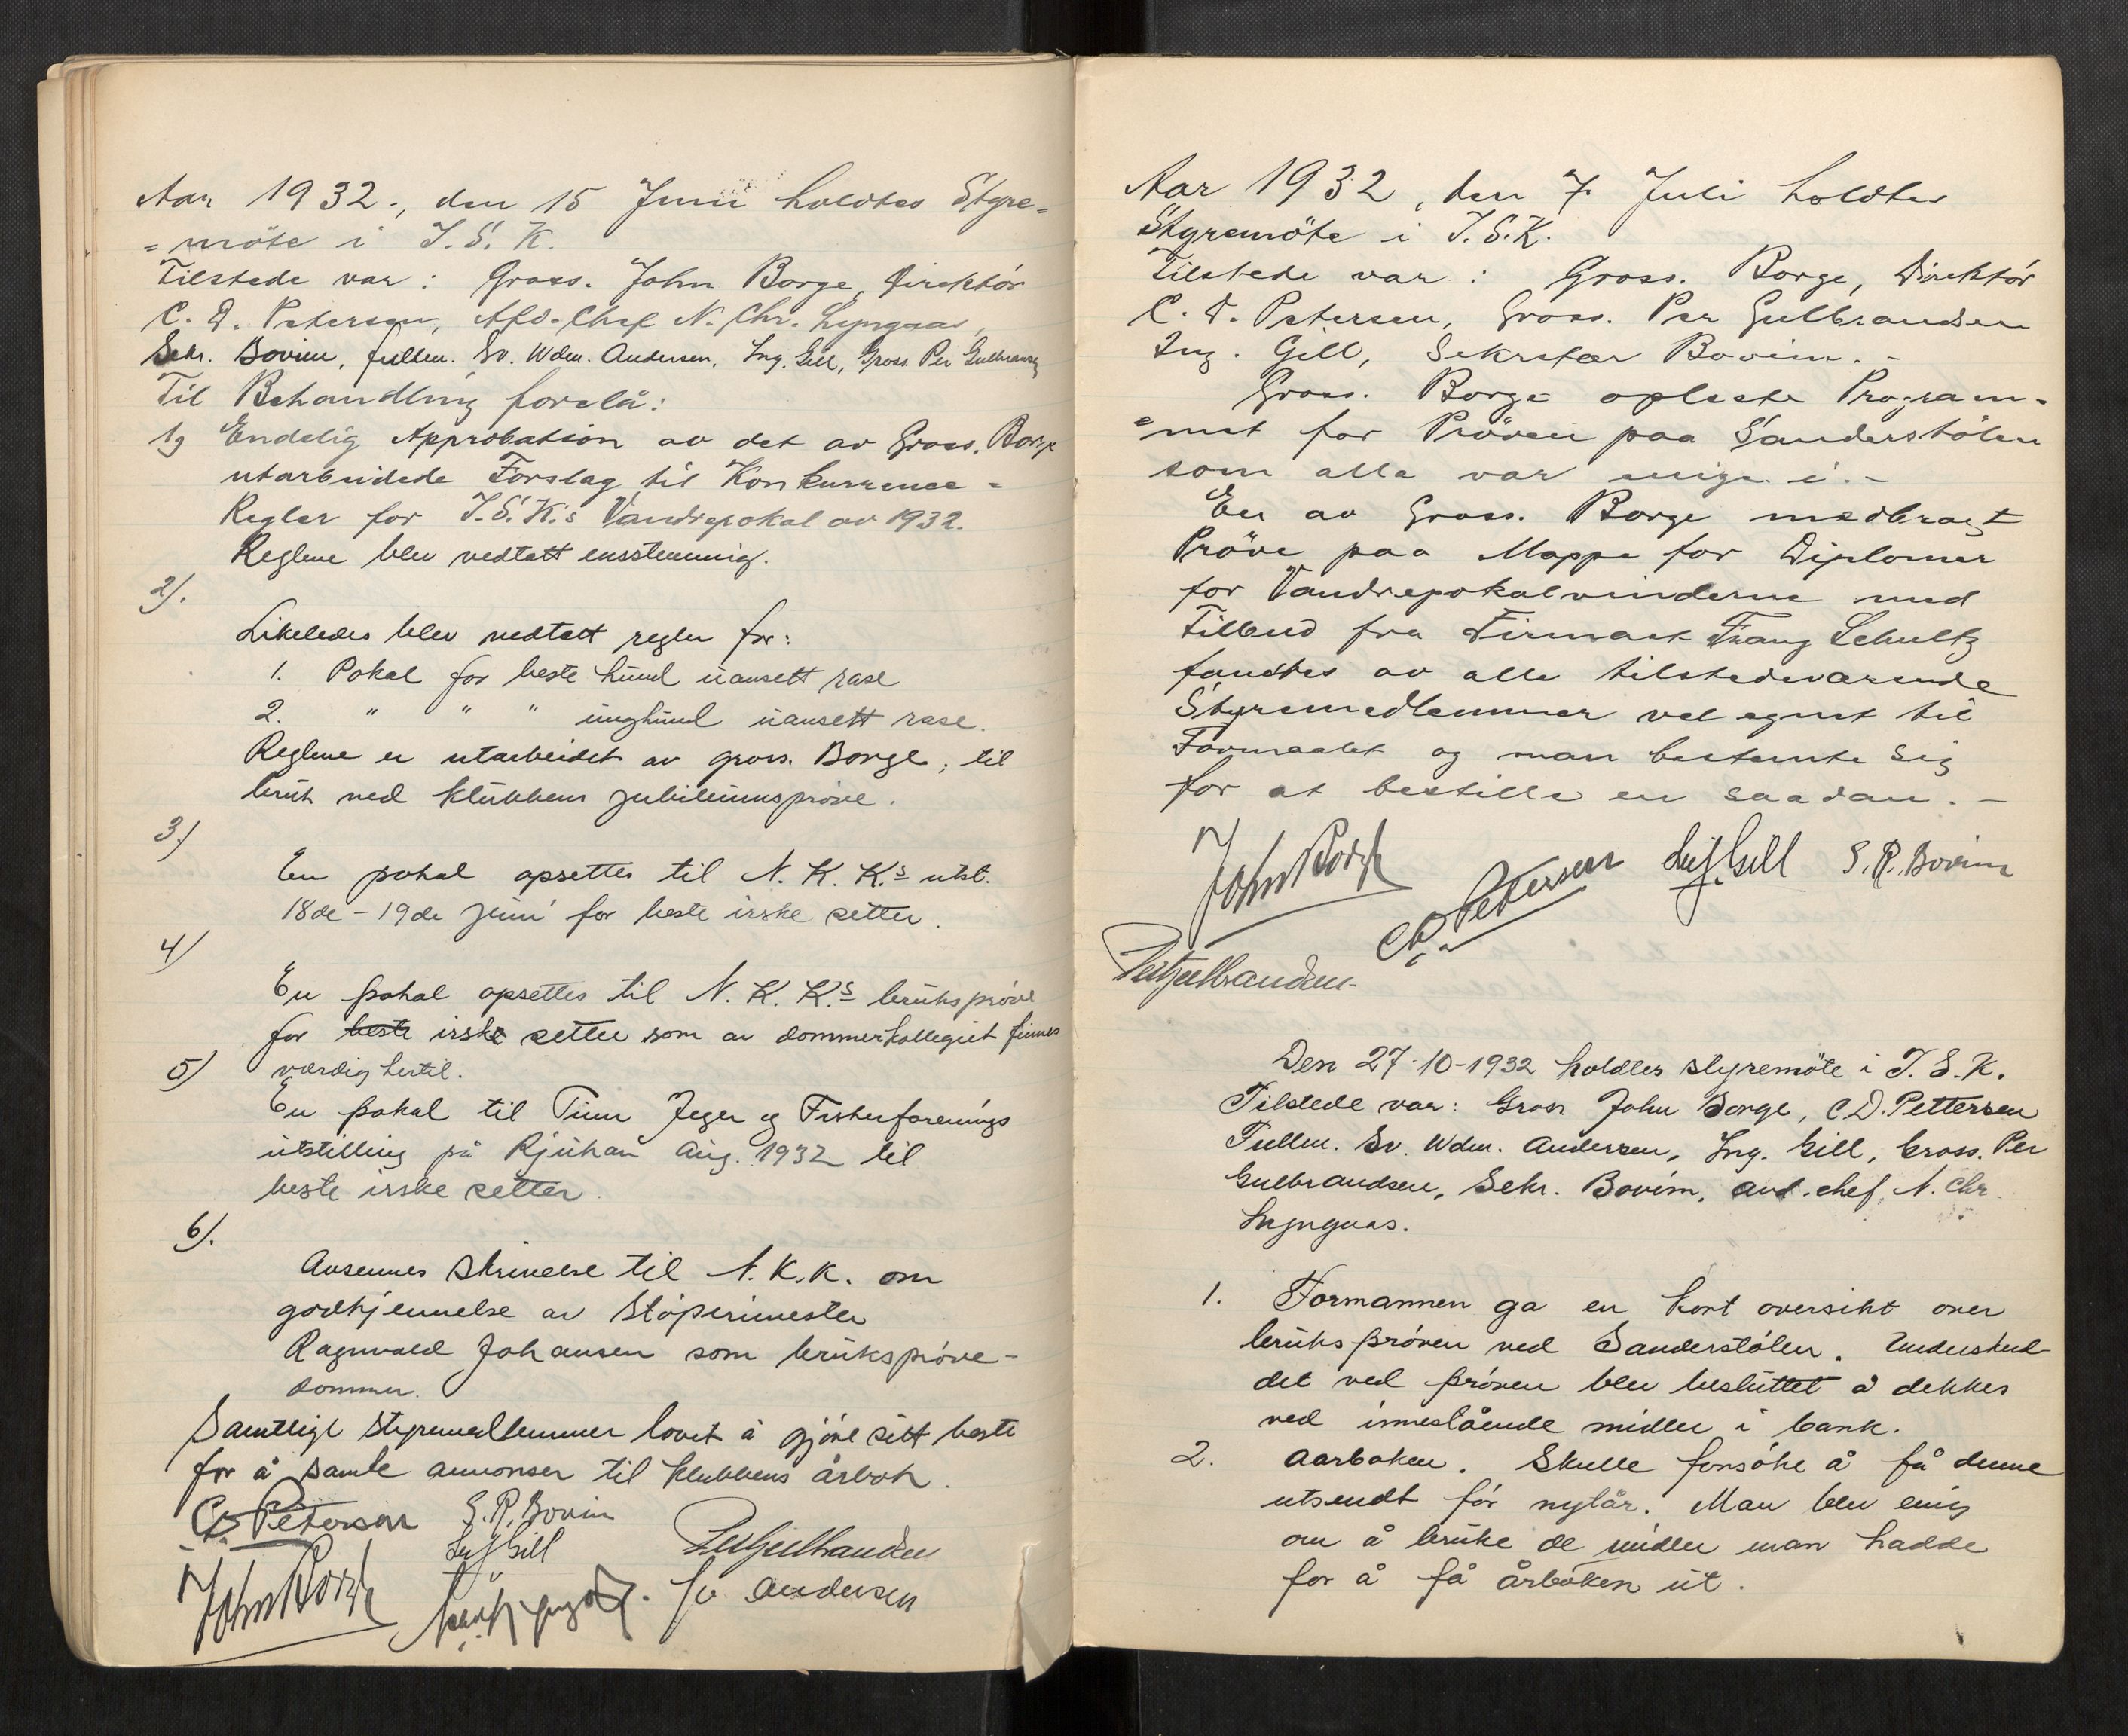 Aar 1932., den 15 Juni holdtes Styre=
=möte i I.S.K.
Tilstede var: Gross. John Borge, Direktör
C. D. Petersen, Afd-Chef N. Chr. Lyngaas,
Sekr. Bovim, fullm. Sv. Wdm. Andersen, Ing. Gill, Gross. Per Gulbrandsen
Til Behandling forelå:
1) Endelig Approbation av det av Gross. Borge
utarbeidede Forslag til Konkurrence=
Regler for I.S.K.s Vandrepokal av 1932.
Reglene blev vedtatt enstemmig.
2).
Likeledes blev vedtatt regler for:
1. Pokal for beste hund uansett rase
2. " " " unghund uansett rase.
Reglene er utarbeidet av gross. Borge, til
bruk ved klubbens jubileumsprøve.
3)
En pokal opsettes til N.K.K.s utst.
18de-19de juni for beste irske setter.
4)
En pokal opsettes til N.K.K.s bruksprøve
for beste irske setter som av dommerkollegiet finnes
5) værdig hertil.
En pokal til Tinn Jeger og Fiskerforenings
utstilling på Rjukan Aug. 1932 til
beste irske setter.
6).
Avsennes skrivelse til N.K.K. om
godkjennelse av Støperimester
Ragnvald Johansen som bruksprøve-
dommer.
Samtlige styremedlemmer lovet å gjøre sitt beste
for å samle annonser til klubbens årbok.
C.D. Petersen S.R. Bovim
Leif Gill Per Gulbrandsen
John Borge Sv Andersen
Aar 1932, den 7 Juli holdtes
Styremöte i I.S.K.
Tilstede var: Gross. Borge, Direktör
C. D. Petersen, Gross. Per Gulbrandsen
Ing. Gill, Sekretær Bovim.-
Gross. Borge opleste Program-
=met for Pröven paa Sanderstölen
som alle var enige i.-
En av Gross. Borge medbragt
Pröve paa Mappe for Diplomer
for Vandrepokalvinderne med
Tilbud fra Firmaet Franz Schultz
fandtes av alle tilstedeværende
Styremedlemmer vel egnet til
Formaalet og man bestemte sig
for at bestille en saadan.-
John Borge C.D. Petersen Leif Gill S.R. Bovim
Per Gulbrandsen
Den 27-10-1932 holdtes styremöte i I.S.K.
Tilstede var: Gross John Borge, C.D. Pettersen
Fullm. Sv. Wdm. Andersen, Ing. Gill, Gross. Per
Gulbrandsen, Sekr. Bovim, avd. chef. N. Chr.
Lyngaas.
1. Formannen ga en kort oversikt over
bruksprøven ved Sanderstølen. Underskud-
det ved prøven blev besluttet å dekkes
ved innestående midler i bank.
2. Aarboken. Skulle forsøke å få denne
utsendt før nytår. Man blev enig
om å bruke de midler man hadde
for å få årboken ut.